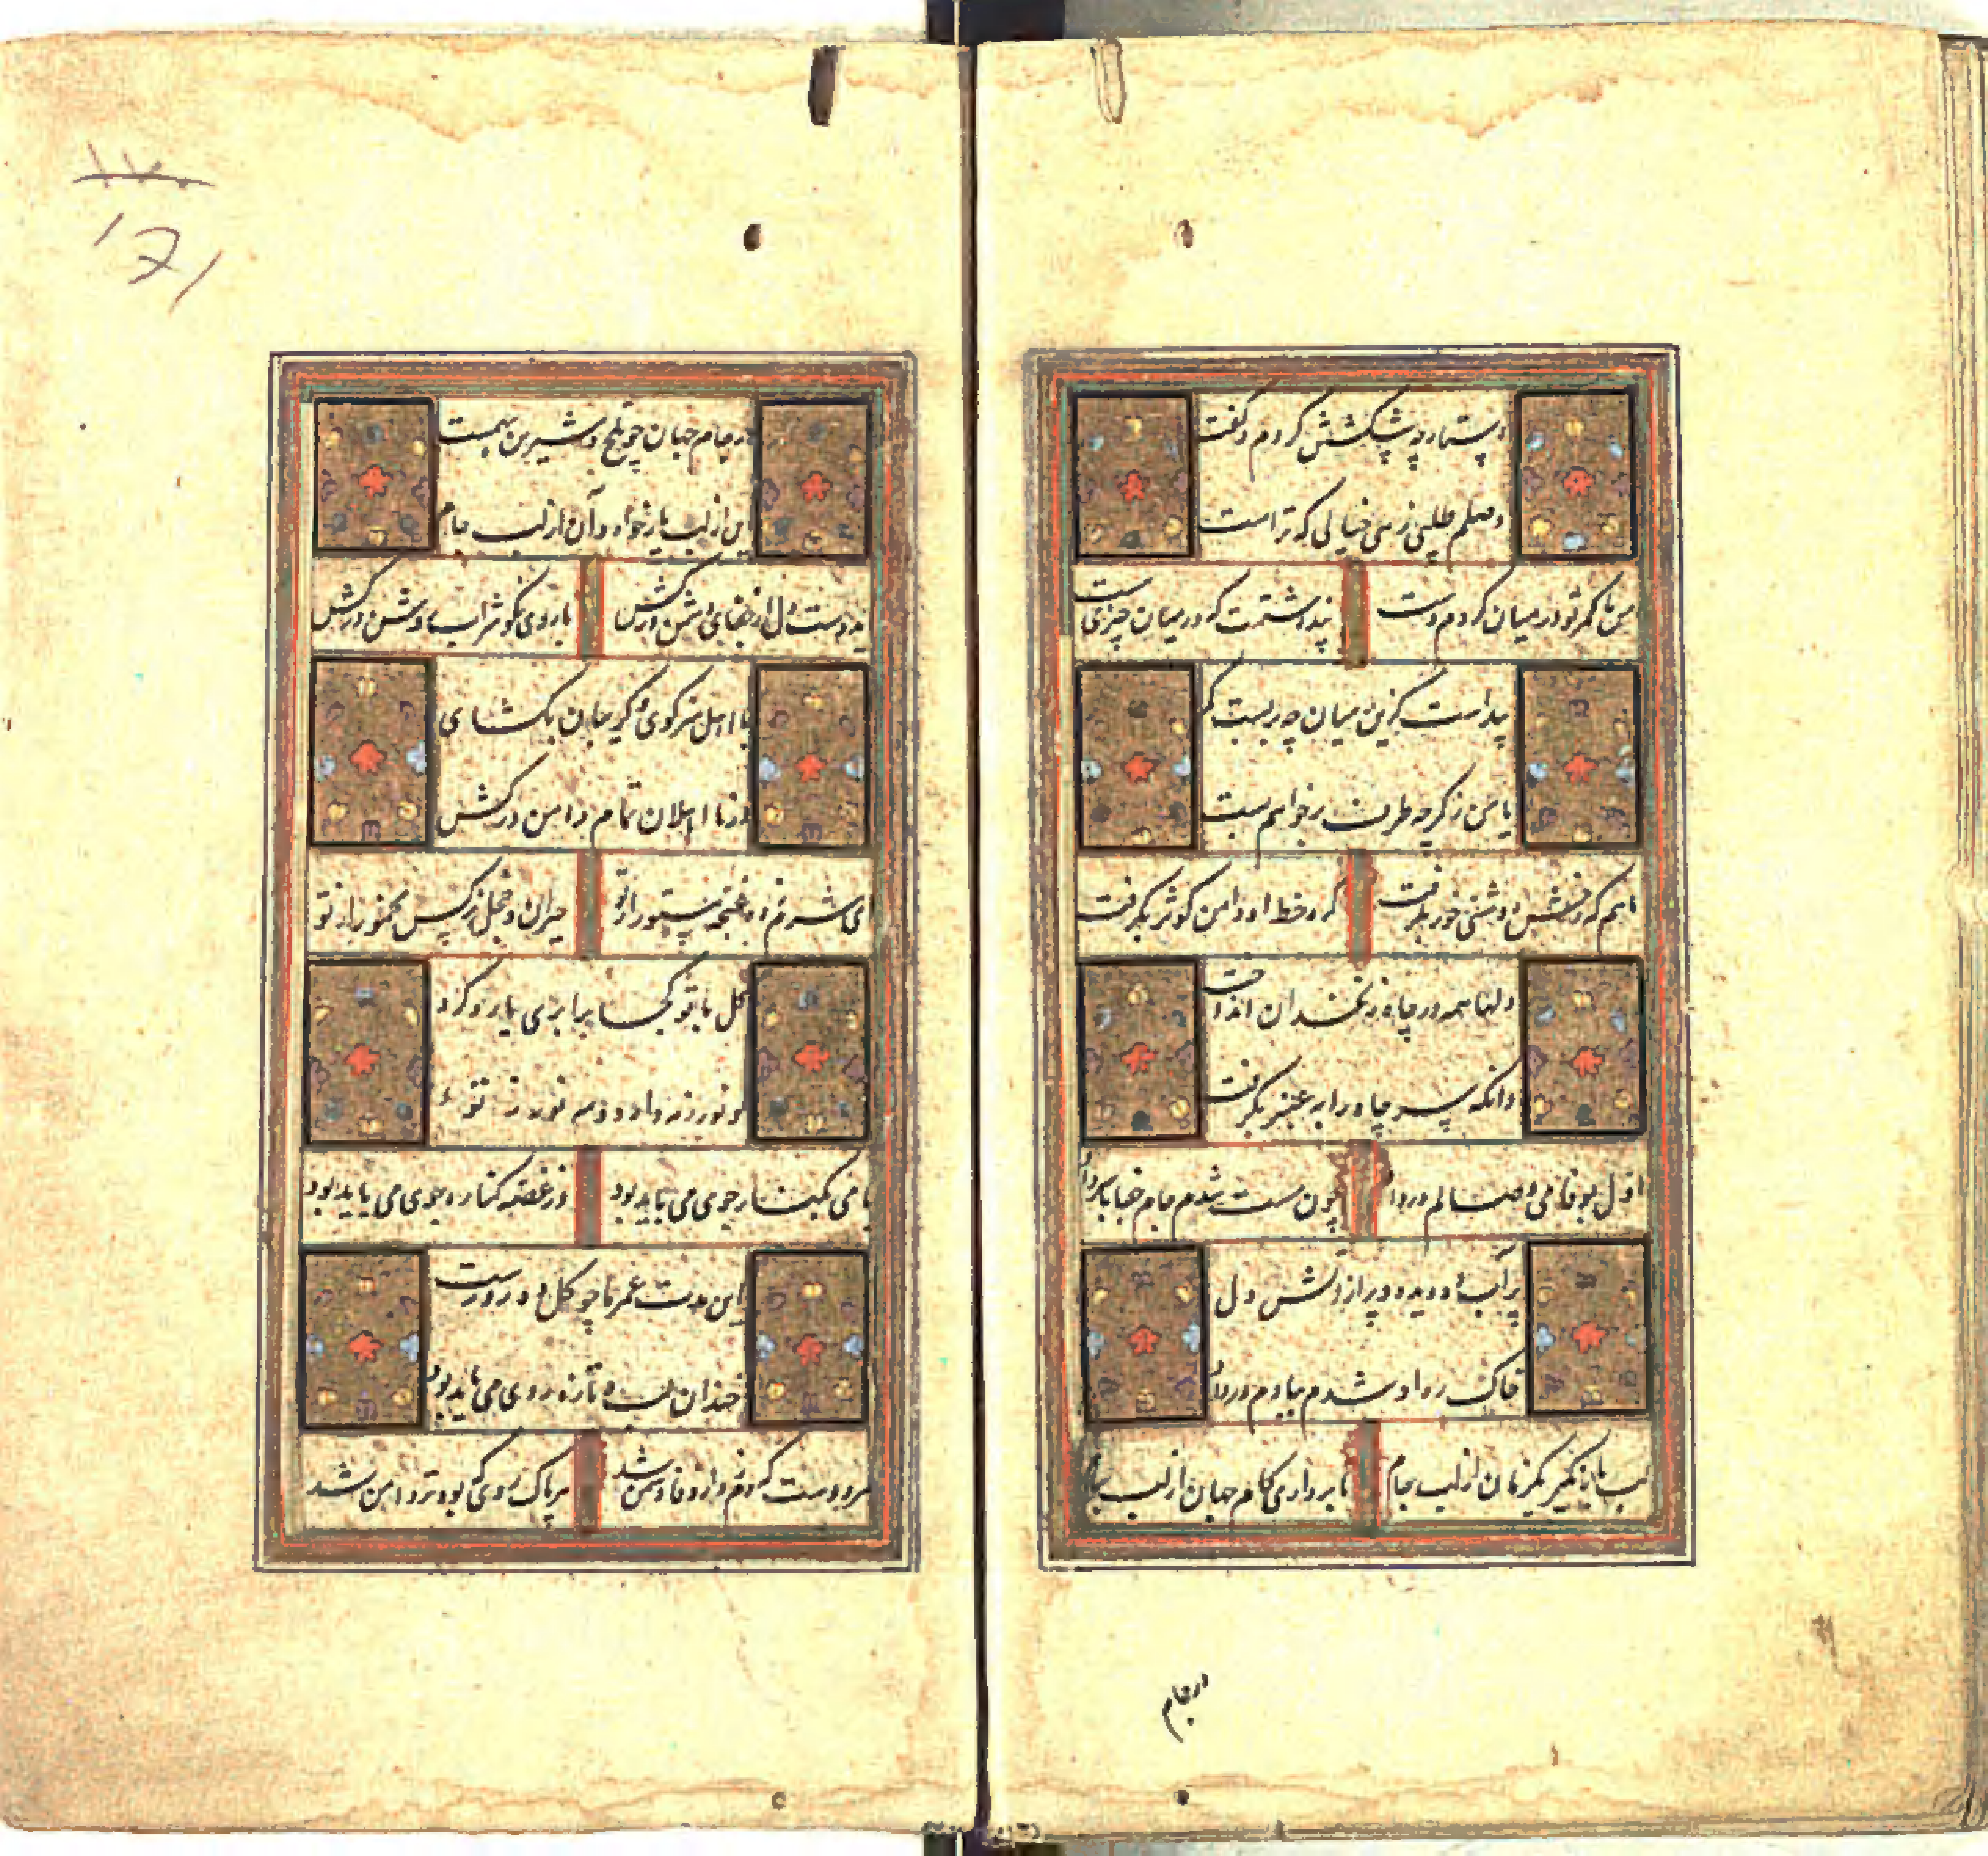 دستارچه پیشکشش کردم و گفت
وصلم طلبی زهی خیالی که تراست
من با کمر تو در میان کردم دست پنداشتمت که در میان چیزی هست
پیداست کزین میان چه بربست کمر
تا من ز کمر چه طرف برخواهم بست
ماهم که رخش روشنی خور بگرفت گرد خط او دامن کوثر بگرفت
دلها همه در چاه زنخدان انداخت
وانگه سر چاه را به عنبر بگرفت
اول بوفا می وصالم درداد چون مست شدم جام جفا را سرداد
پر آب دو دیده و پر از آتش دل
خاک ره او شدم ببادم درداد
لب باز مگیر یکزمان از لب جام تا برداری کام جهان از لب جام
در جام
۱۷۰
171
در جام جهان چو تلخ و شیرین بهمست
این از لب یار خواه و آن از لب جام
ای دوست دل از جفای دشمن درکش با روی نکو شراب روشن درکش
با اهل هنر کوی گریبان بکشای
وز نا اهلان تمام دامن درکش
ای شرم زده غنچه مستور از تو حیران و خجل نرگس مخمور از تو
گل با تو کجا برابری یارد کرد
کو نور ز مه دارد و مه نور ز تو
با می بکنار جوی می باید بود وز غصه کناره جوی می باید بود
این مدت عمر ما چو گل ده روزست
خندان لب و تازه روی می باید بود
هر دوست که دم زد از وفا دشمن شد هر پاک روی که بود تردامن شد